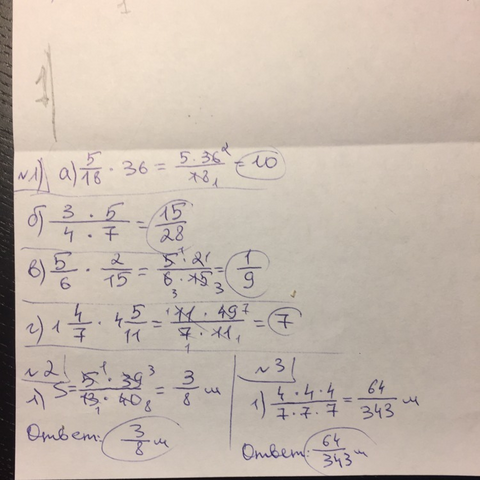 1
№1) а) 5/18 · 36 = 5·36²/18₁ = 10
б) 3·5/4·7 = 15/28
в) 5/6 · 2/15 = 5¹·2¹/6₃·15₃ = 1/9
г) 1 4/7 · 4 5/11 = ¹11·49⁷/7₁·11₁ = 7
№2
1) S = 5¹·39³/13₁·40₈ = 3/8 м
Ответ: 3/8 м
№3
1) 4·4·4/7·7·7 = 64/343 м
Ответ: 64/343 м